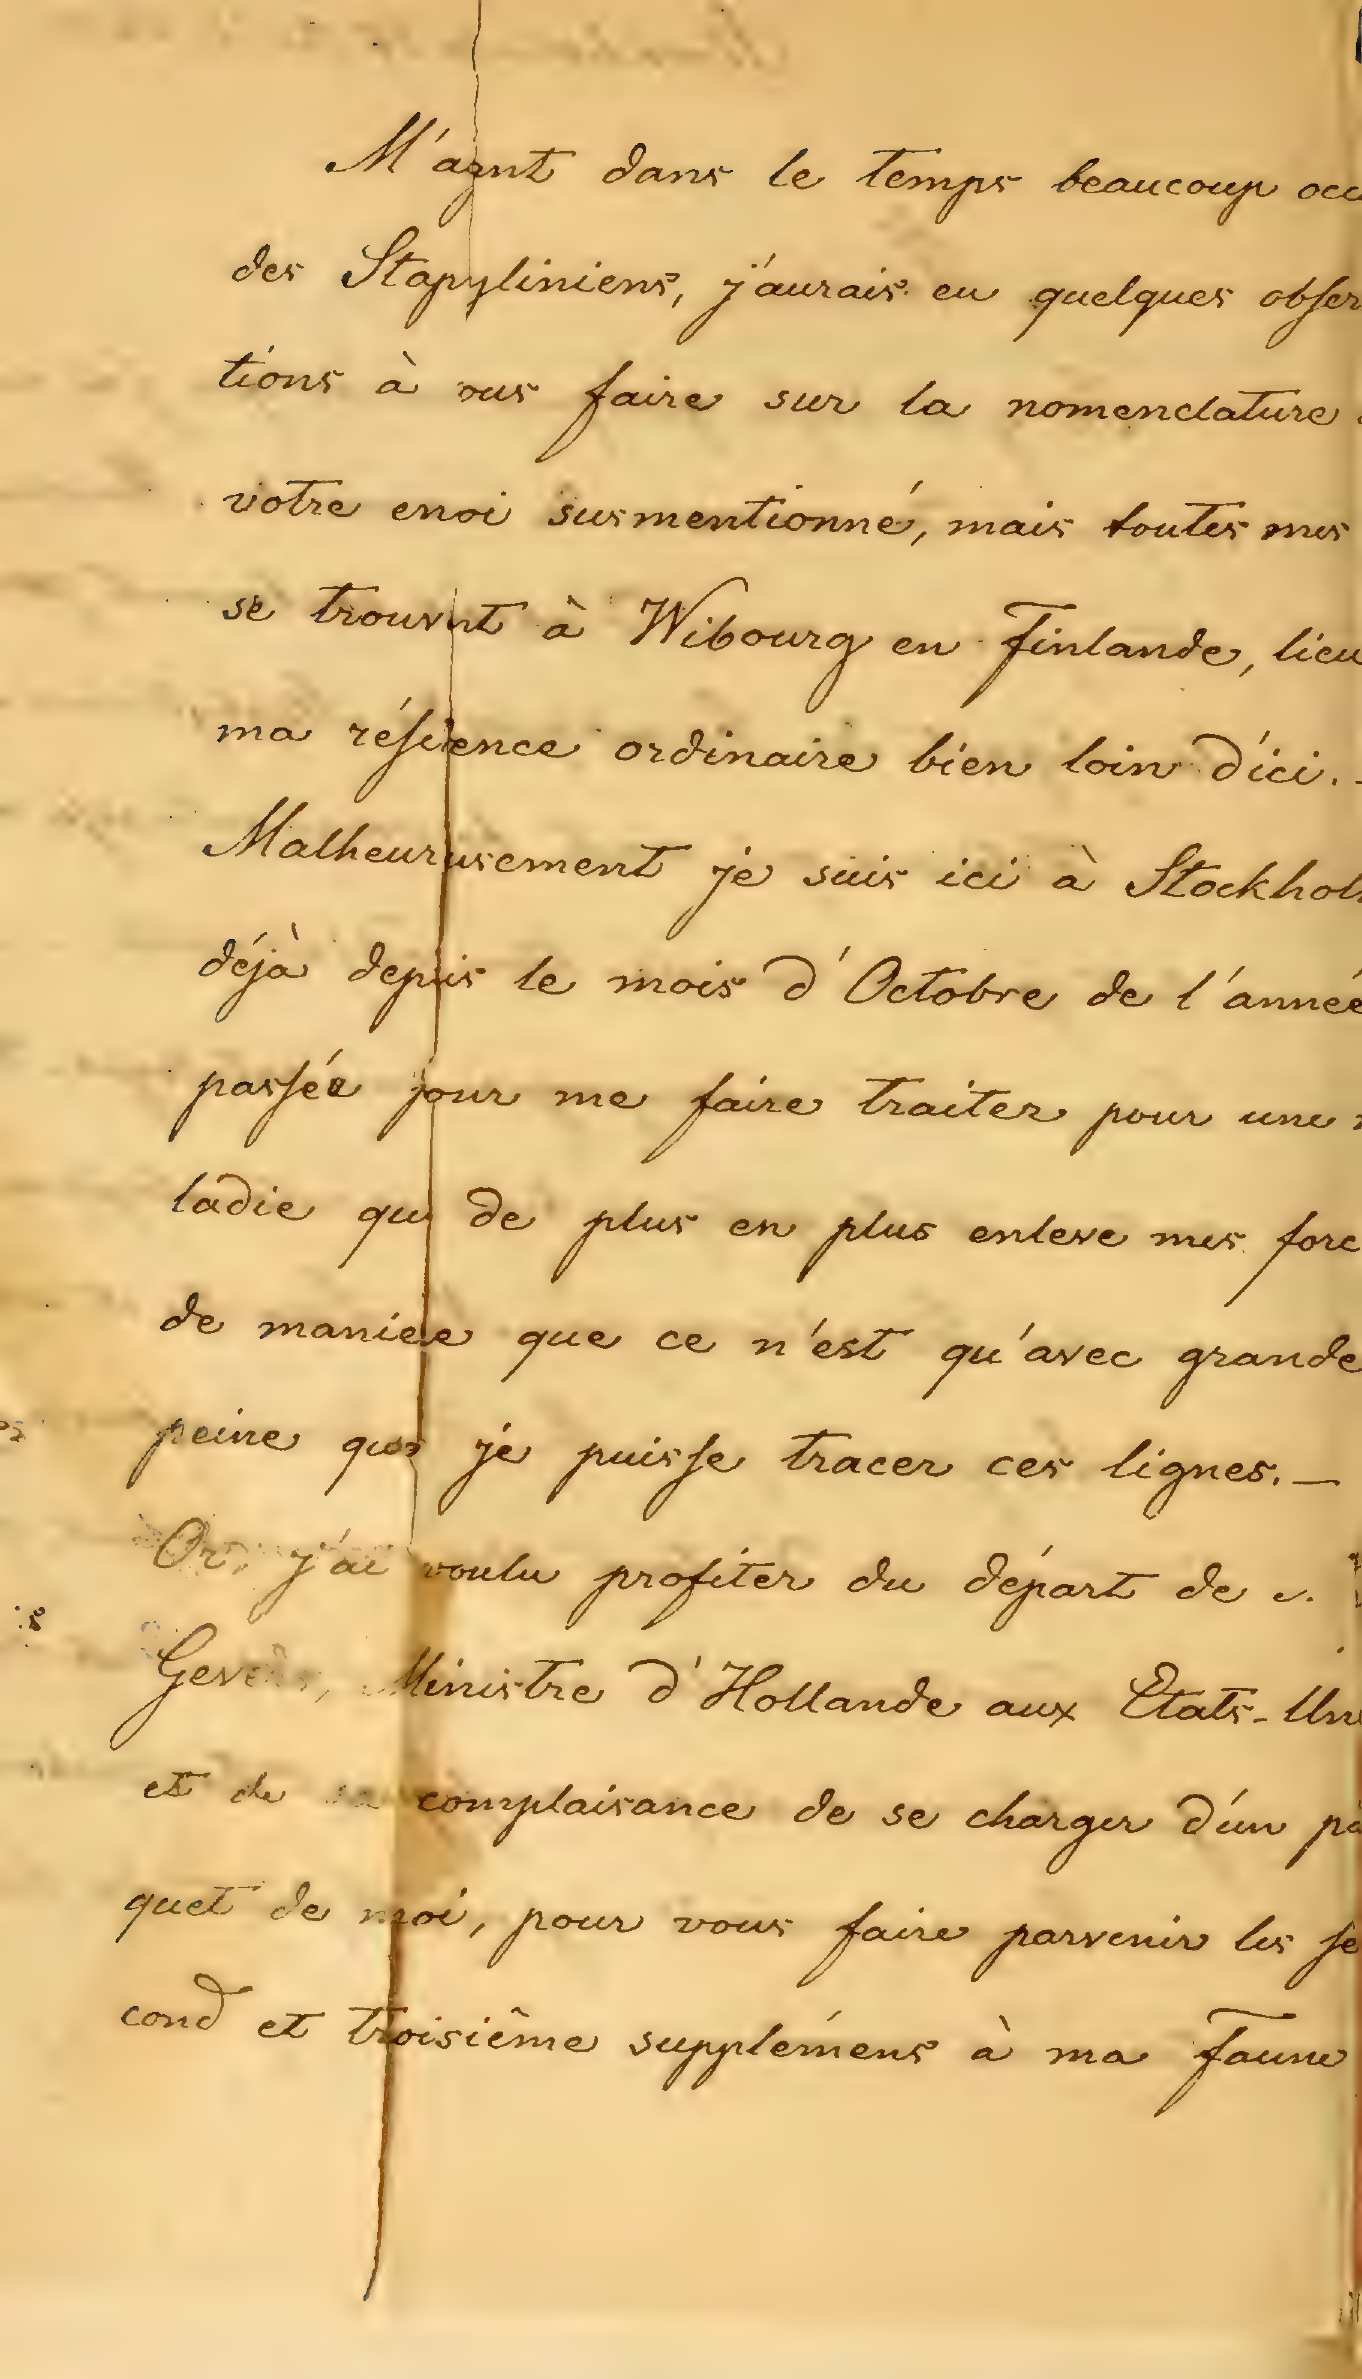 M'aynt dans le temps beaucoup occu
des Stapyliniens, j'aurais eu quelques obser
tions à vous faire sur la nomenclature
votre envoi susmentionné, mais toutes mes
se trouvent à Wibourg en Finlande, lieu
ma résidence ordinaire bien loin d'ici. -
Malheureusement je suis ici à Stockhol
déjà depuis le mois d'Octobre de l'année
passée pour me faire traiter pour une
ladie qui de plus en plus enleve mes forc
de maniere que ce n'est qu'avec grande
peine que je puisse tracer ces lignes. —
Or, j'ai voulu profiter du départ de
Gevers, Ministre d'Hollande aux Etats-Un
et de sa complaisance de se charger d'un pa
quet de moi, pour vous faire parvenir les se
cond et troisième supplémens à ma Faune